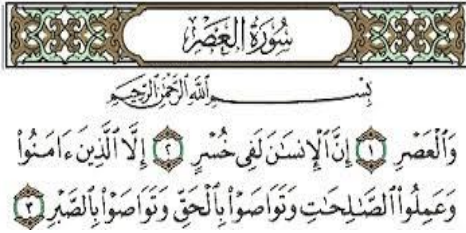 سُورَةُ الْعَصْرِ
بِسْمِ اللَّهِ الرَّحْمَٰنِ الرَّحِيمِ
وَٱلْعَصْرِ ١ إِنَّ ٱلْإِنسَٰنَ لَفِى خُسْرٍ ٢ إِلَّا ٱلَّذِينَ ءَامَنُوا۟
وَعَمِلُوا۟ ٱلصَّٰلِحَٰتِ وَتَوَاصَوْا۟ بِٱلْحَقِّ وَتَوَاصَوْا۟ بِٱلصَّبْرِ ٣